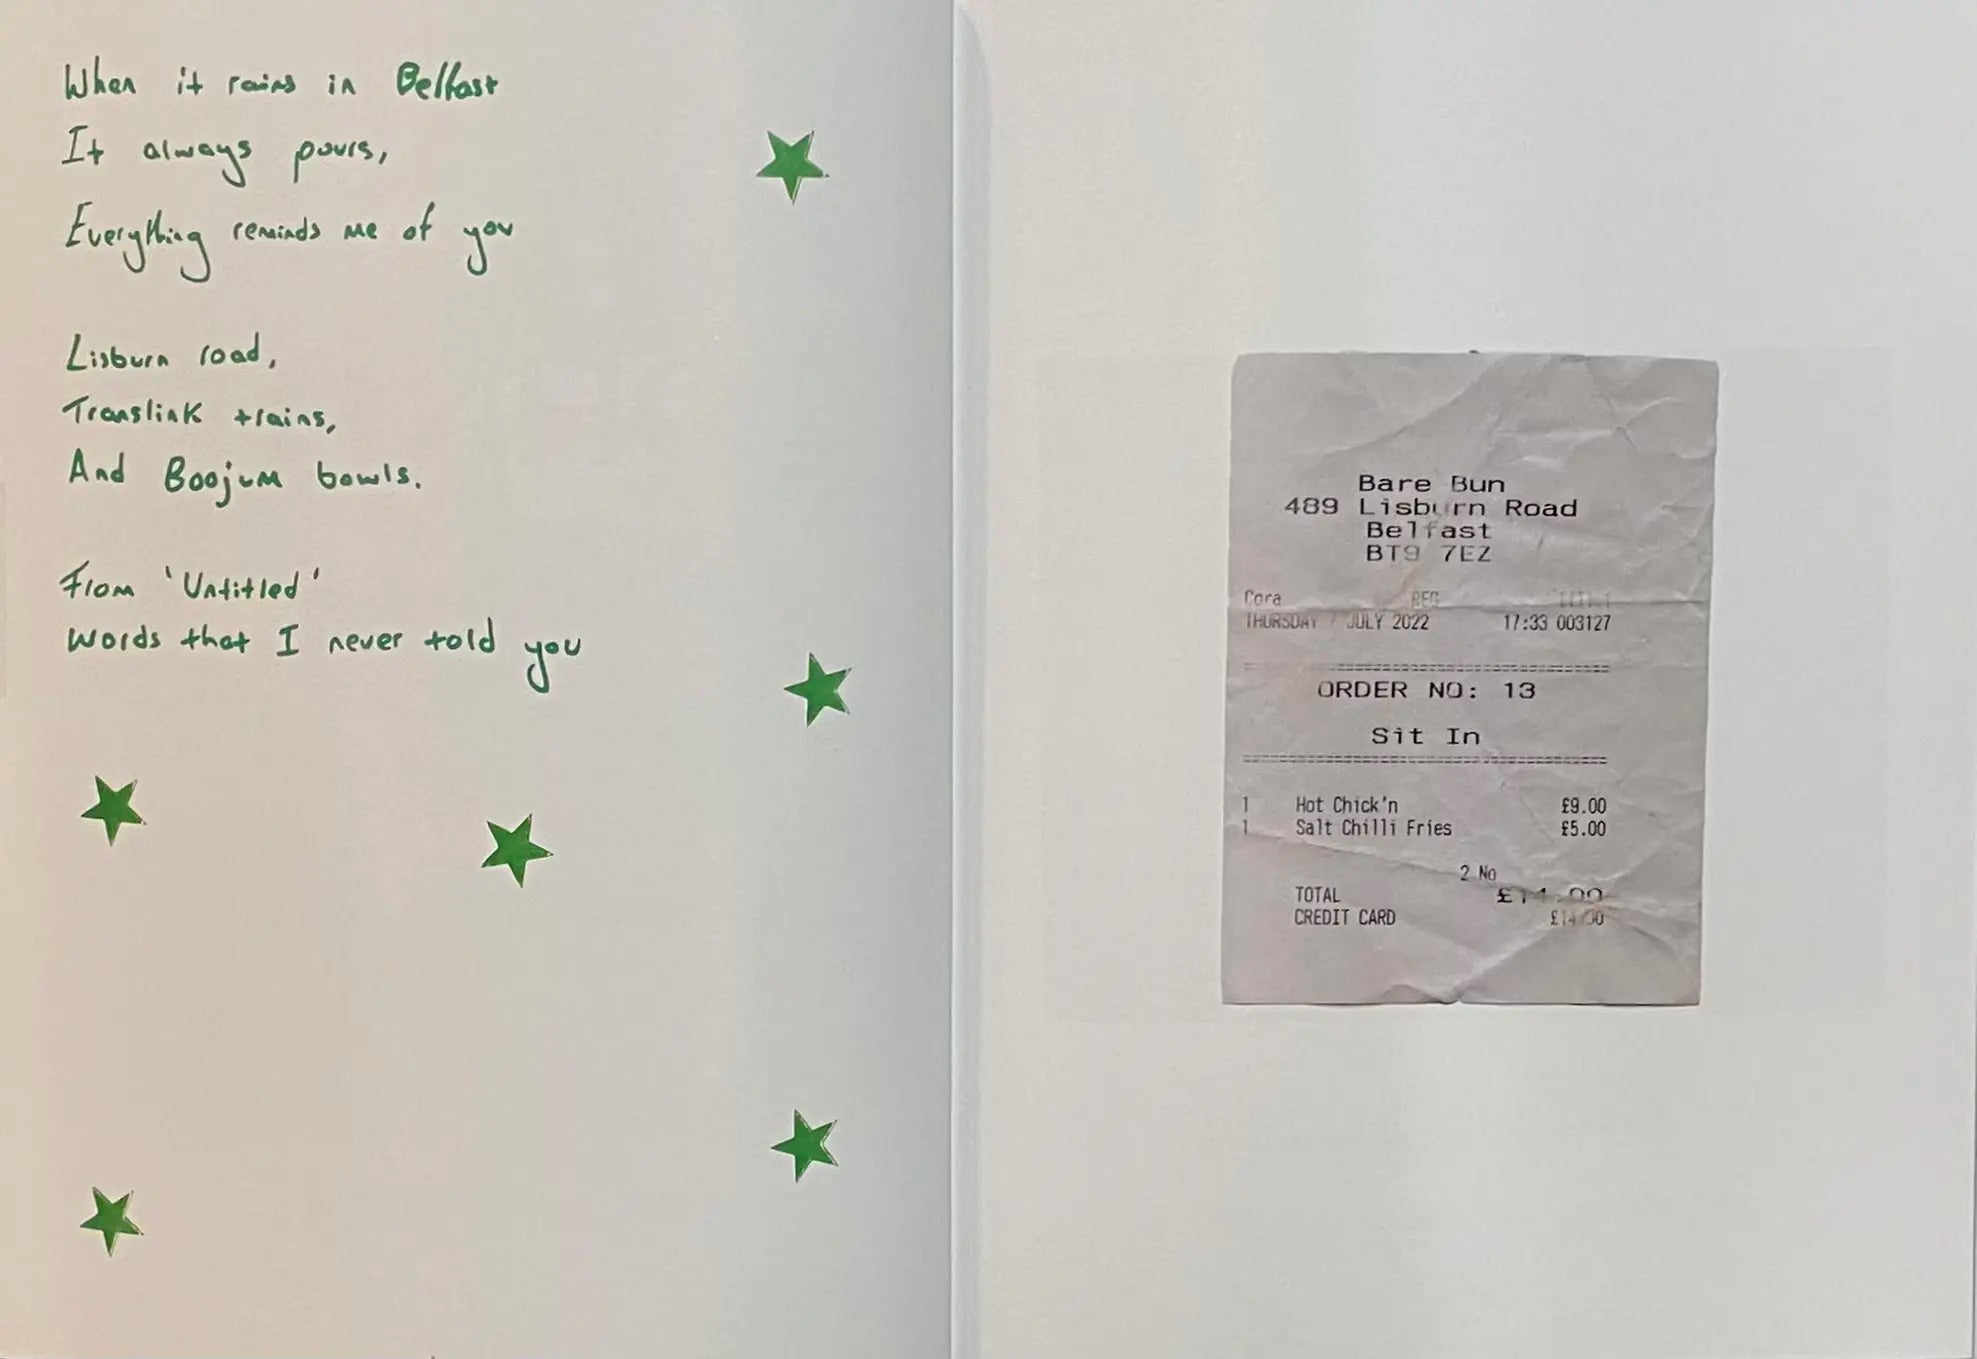 When it rains in Belfast
It always pours,
Everything reminds me of you
Lisburn road,
Translink trains,
And Boojum bowls.
From 'Untitled'
Words that I never told you
Bare Bun
489 Lisburn Road
Belfast
BT9 7EZ
Cora REG
THURSDAY 7 JULY 2022 17:33 003127
ORDER NO: 13
Sit In
1 Hot Chick'n £9.00
1 Salt Chilli Fries £5.00
2 No
TOTAL £14.00
CREDIT CARD £14.00